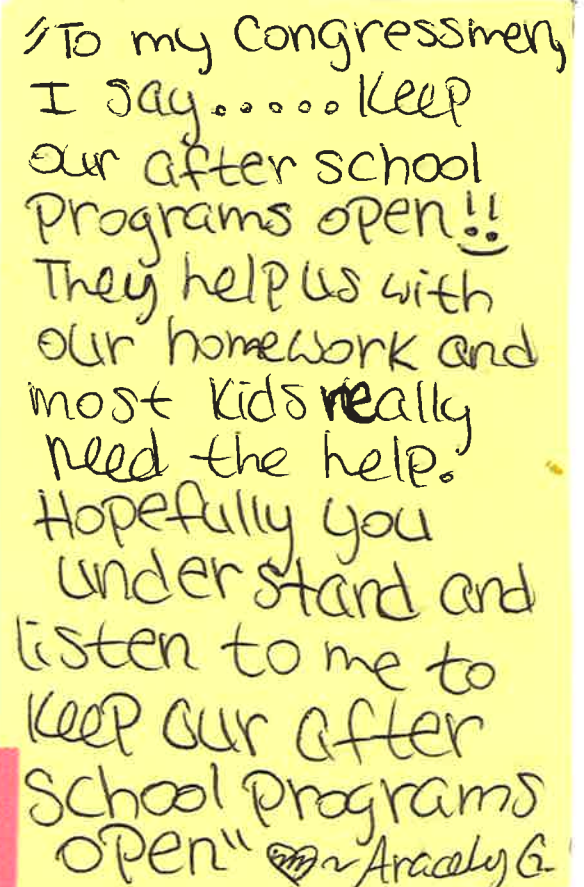 "To my Congressmen,
I say..... Keep
our after school
Programs open!!
They help us with
our homework and
most kids really
need the help.
Hopefully you
understand and
listen to me to
keep our after
school programs
open" ~ Aracely G.